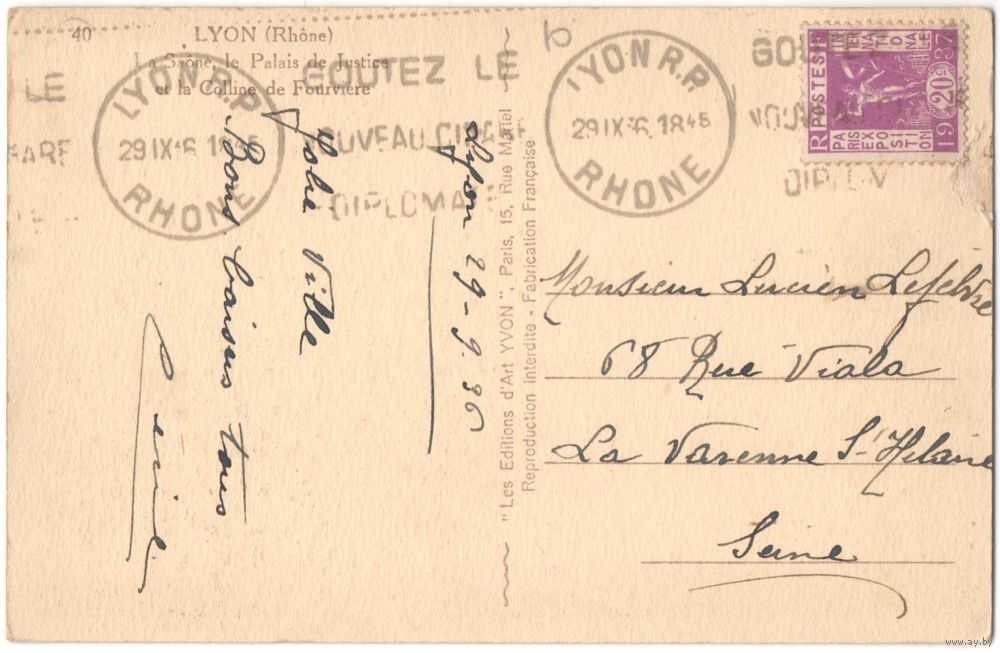 40 LYON (Rhône)
La Saône, le Palais de Justice
et la Colline de Fourvière
LE
LYON R.P.
29 IX 36 1845
RHONE
GOUTEZ LE
NOUVEAU CIGARE
DIPLOMA
LYON R.P.
29 IX 36 1845
RHONE
GOU
NOUV
DIPLOM
RF POSTES
PARIS EXPOSITION INTERNATIONALE
1937
20c
Lyon 29-9.36
Jolie Ville
Bons baisers tous
"Les Editions d'Art YVON", Paris, 15, Rue Martel
Reproduction interdite - Fabrication Française
Monsieur Lucien Lefebvre
68 Rue Viala
La Varenne St-Hilaire
Seine
www.ay.by